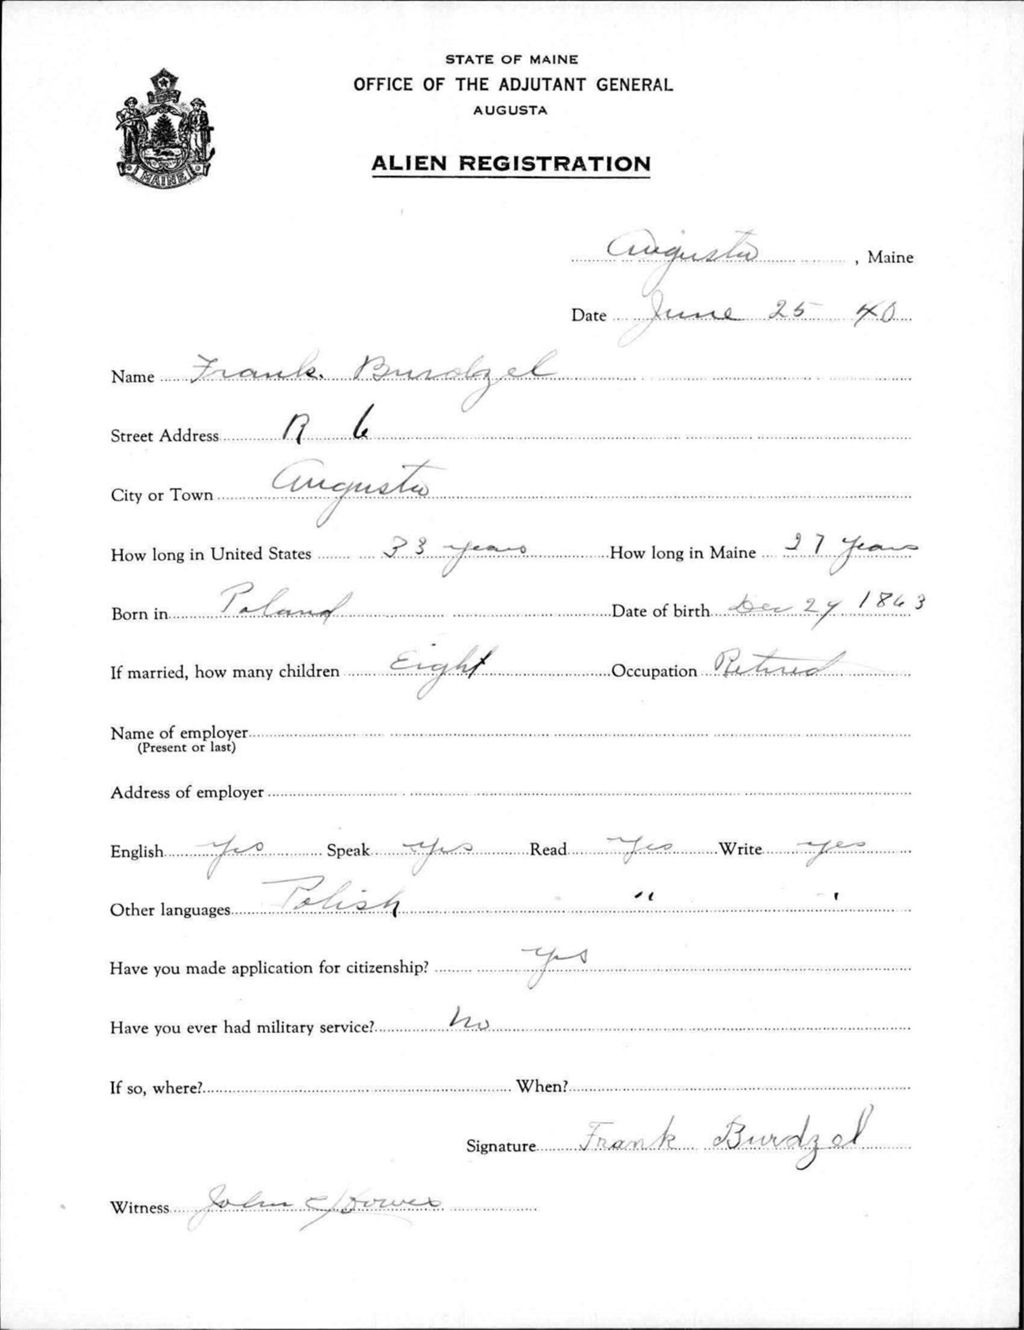 STATE OF MAINE
OFFICE OF THE ADJUTANT GENERAL
AUGUSTA
MAINE
ALIEN REGISTRATION
Augusta, Maine
Date June 25 40
Name Frank. Burdzel
Street Address R 6
City or Town Augusta
How long in United States 33 years How long in Maine 27 years
Born in Poland Date of birth Dec 24 1863
If married, how many children Eight Occupation Retired
Name of employer
(Present or last)
Address of employer
English yes Speak yes Read Yes Write yes
Other languages Polish " "
Have you made application for citizenship? yes
Have you ever had military service? No
If so, where? When?
Signature Frank Burdzel
Witness John